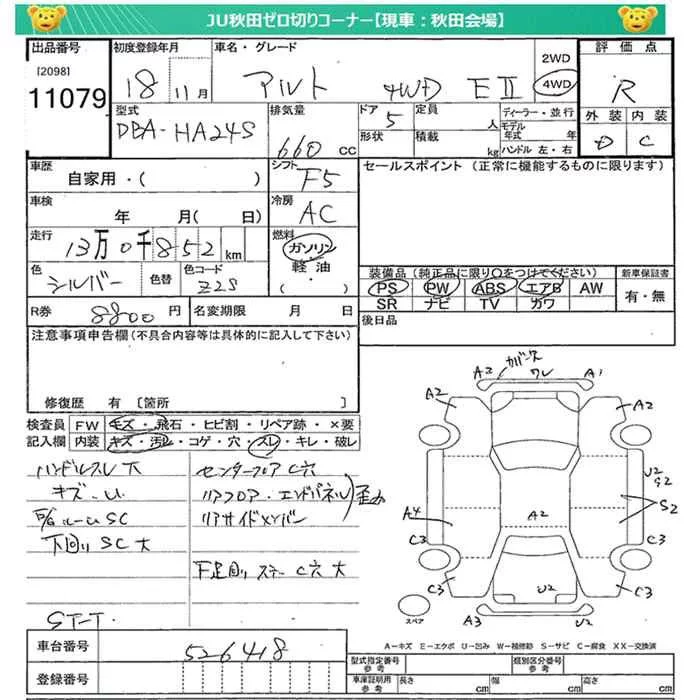 JU秋田ゼロ切りコーナー【現車：秋田会場】
出品番号
[2098]
11079
初度登録年月
18 11月
車名・グレード
アルト 4WD EⅡ
2WD
4WD
評価点
R
外装 内装
D C
型式
DBA-HA24S
排気量
660 cc
ドア
5
形状
定員
人
積載
kg
ディーラー・並行
モデル年式 年
ハンドル 左・右
車歴
自家用・( )
シフト
F5
セールスポイント (正常に機能するものに限ります)
車検
年 月( 日)
冷房
AC
走行
13万0千852km
燃料
ガソリン
軽油
( ・ )
色
シルバー
色替
色コード
Z2S
装備品 (純正品に限り○をつけてください)
PS PW ABS エアB AW
SR ナビ TV カワ
新車保証書
有・無
R券
8800 円
名変期限 月 日
後日品
注意事項申告欄(不具合内容等は具体的に記入して下さい)
修復歴 有 [箇所 ]
検査員記入欄
FW キズ・飛石・ヒビ割・リペア跡・×要
内装 キズ・汚レ・コゲ・穴・スレ・キレ・破レ
ハンドルスレ大
キズ・U
下回り SC 大
センターフロア C穴
リアフロア・エンドパネル
リアサイドメンバー
歪み
ST-T
車台番号
526418
登録番号
カバース
ワレ
A2 A1
A2 A2
U2
S2
S2
A4
A2
C3 C3
C3 C3
U2
A3 U2
スペア
A－キズ E－エクボ U－凹み W－補修跡 S－サビ C－腐食 XX－交換済
型式指定番号
参考
類別区分番号
参考
車庫証明用
参考
長さ cm
幅 cm
高さ cm